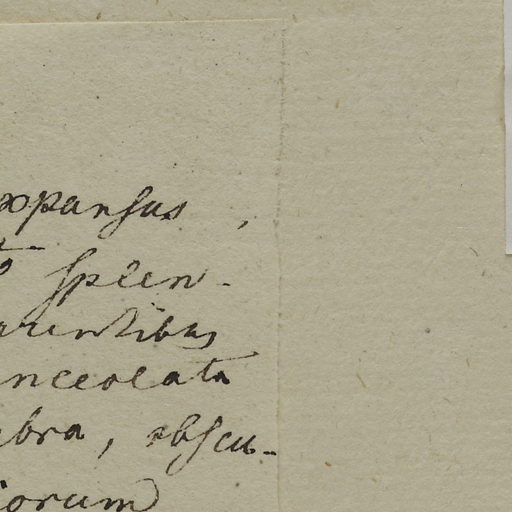 expansus,
splen-
arentibus
anceolata
abra, obscu-
iorum